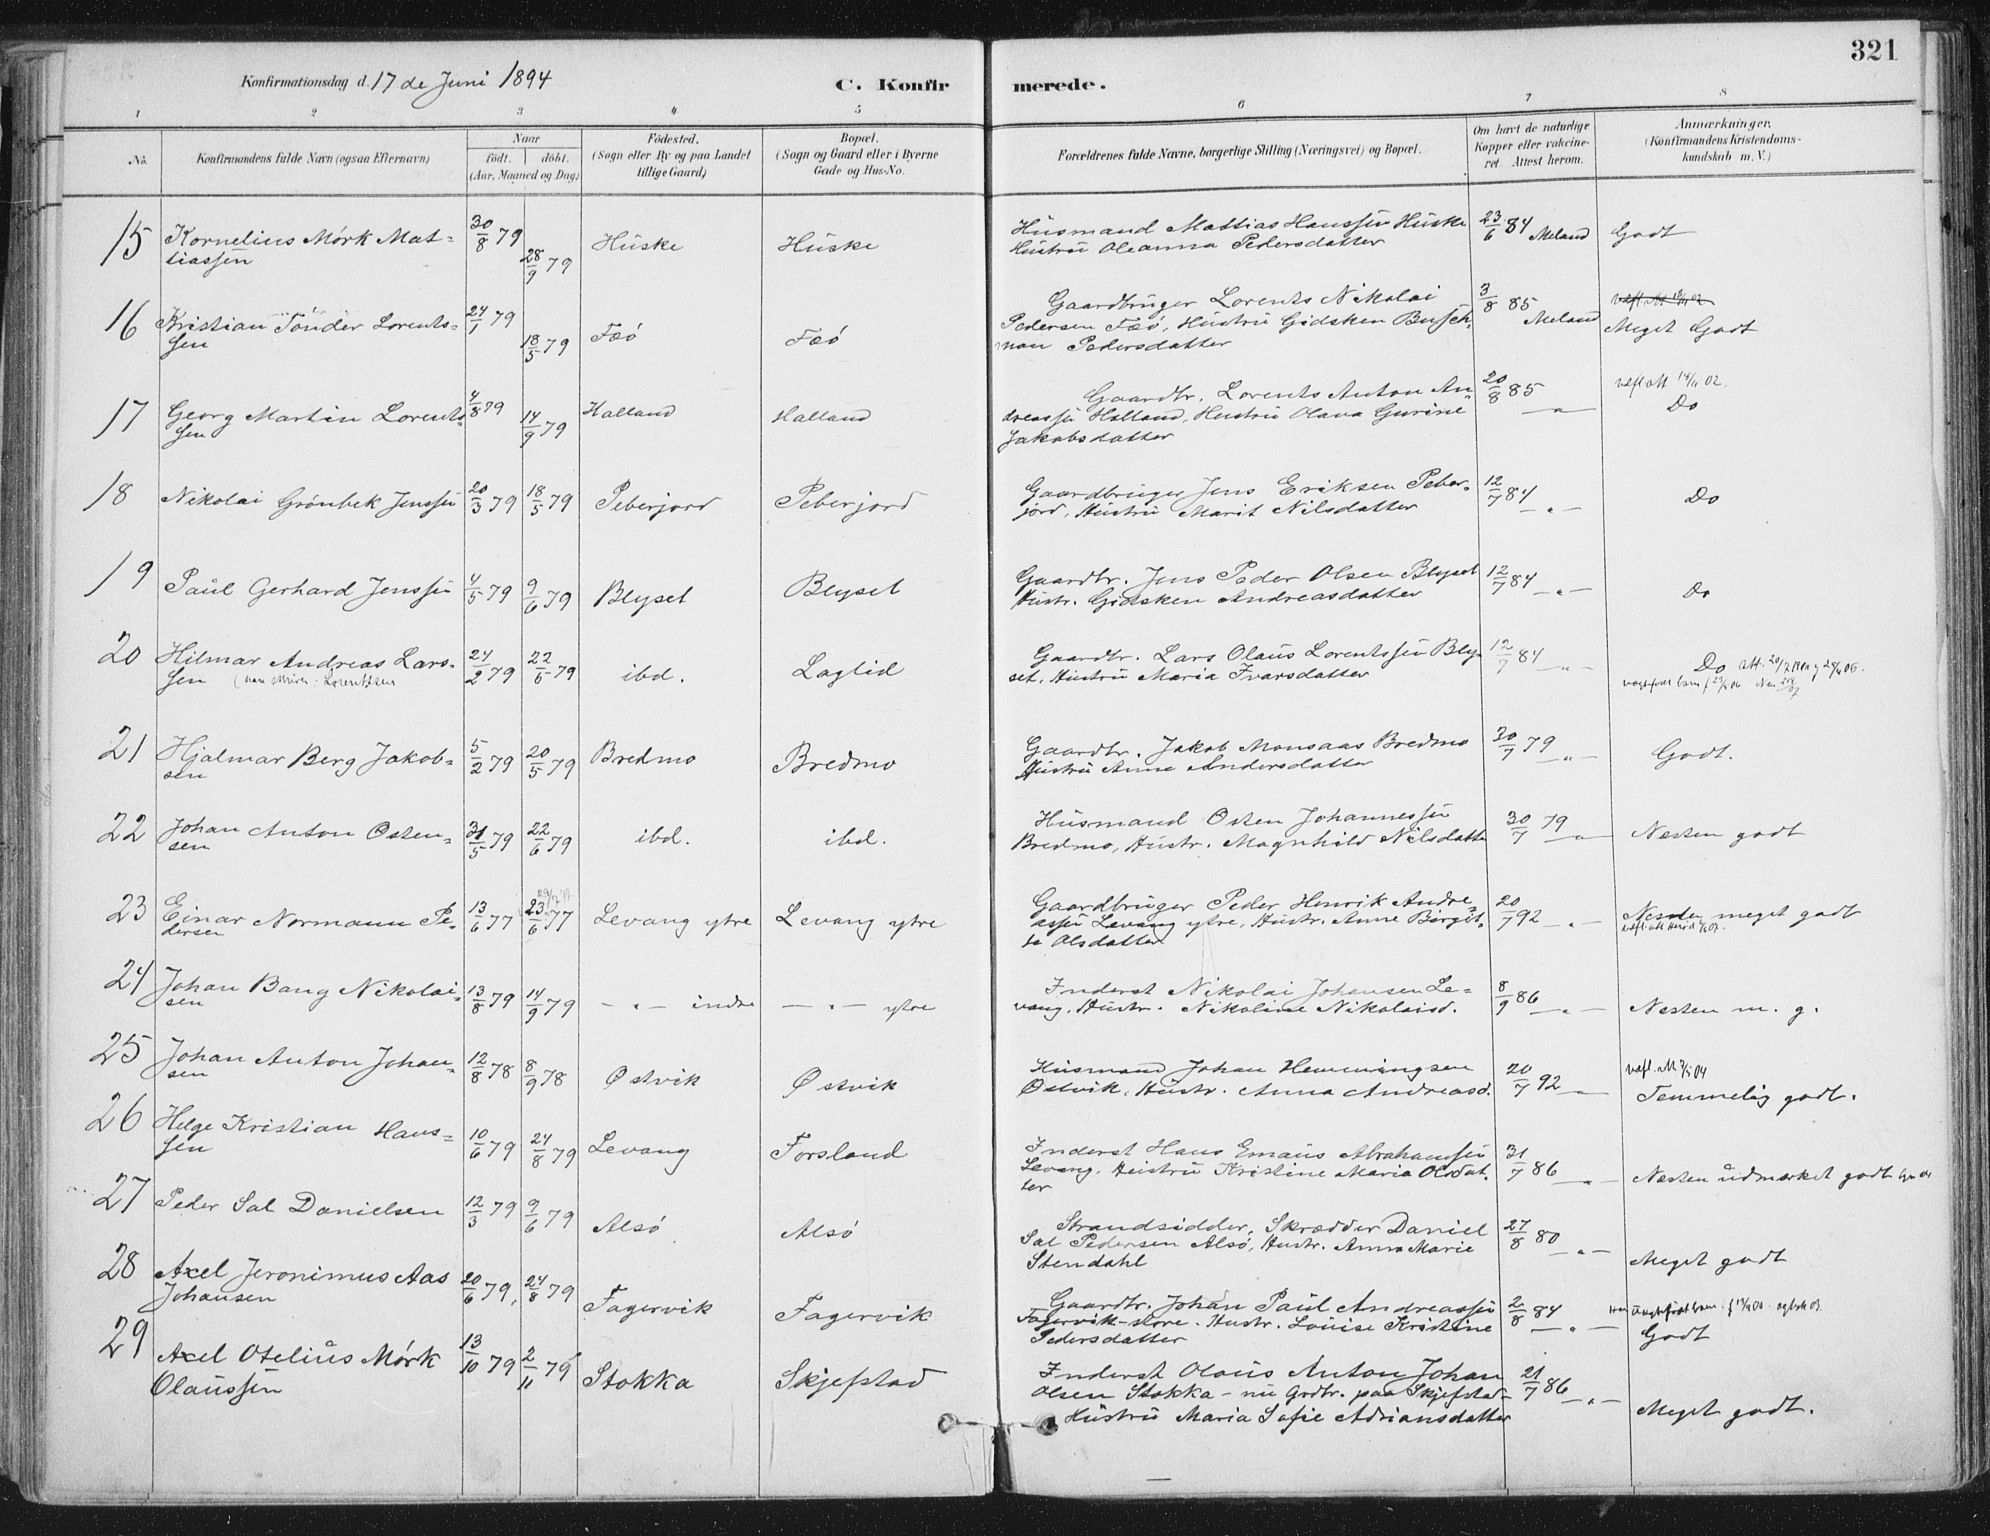 321
Konfirmationsdag d. 17 de Juni 1894
C. Konfirmerede.
1 2 3 4 5 6 7 8
No.
Konfirmandens fulde Navn (ogsaa Efternavn)
Naar
födt. döbt.
(Aar, Maaned og Dag)
Födested.
(Sogn eller By og paa Landet
tillige Gaard)
Bopæl.
(Sogn og Gaard eller i Byerne
Gade og Hus-No.
Forældrenes fulde Navne, borgerlige Stilling (Næringsvei) og Bopæl.
Om havt de naturlige
Kopper eller vakcine-
ret Attest herom.
Anmærkninger,
(Konfirmandens Kristendoms-
kundskab m. V.)
15 Kornelius Mörk Mat-
tiassen
30/8 79 28/9 79 Húske Húske
Húsmand Mattias Hanssen Húske
Hústrú Oleanna Pedersdatter
23/6 84 Meland Godt
16 Kristian Tönder Lorents-
sen
24/1 79 18/5 79 Fæö Fæö
Gaardbrúger Lorents Nikolai
Pedersen Fæö, Hústrú Gidsken Busch-
man Pedersdatter
3/8 85 Meland Meget Godt
17 Georg Martin Lorents-
sen
4/8 79 14/9 79 Halland Halland
Gaardbr. Lorents Anton An-
dreassen Halland, Hústrú Olava Gurine
Jakobsdatter
20/8 85 — " — 02. Do
18 Nikolai Grönbek Jenssen
20/3 79 18/5 79 Peberjord Peberjord
Gaardbrúger Jens Eriksen Peber-
jord, Hústrú Marit Nilsdatter
12/7 84 — " — Do
19 Paul Gerhard Jenssen
4/5 79 9/6 79 Blyset Blyset
Gaardbr. Jens Peder Olsen Blyset
Hústr. Gidsken Andreasdatter
12/7 84 — " — Do
20 Hilmar Andreas Lars-
sen
24/2 79 22/6 79 ibd. Laglid
Gaardbr. Lars Olaús Lorentssen Bly-
set, Hústrú Maria Ivarsdatter
12/7 84 — " — Do
21 Hjalmar Berg Jakob-
sen
5/2 79 20/5 79 Bredmo Bredmo
Gaardbr. Jakob Monsaas Bredmo
Hústrú Anne Andersdatter
30/7 79 — " — Godt.
22 Johan Anton Østen-
sen
31/5 79 22/6 79 ibd. ibd.
Húsmand Østen Johannessen
Bredmo, Hústr. Magnhild Nilsdatte
30/7 79 — " — Nesten godt
23 Einar Normann Pe-
dersen
13/6 77 23/6 77 Levang ytre Levang ytre
Gaardbrúger Peder Henrik Andre-
assen Levang ytre, Hústr. Anne Birgit-
te Olsdatter
20/7 92 — " — Nesten meget godt
24 Johan Bang Nikolai-
sen
13/8 79 14/9 79 — " — indre — " — ytre
Inderst Nikolai Johansen Le-
vang, Hústr. Nikoline Nikolaisd.
8/9 86 — " — Nesten m. g.
25 Johan Anton Johan-
sen
12/8 78 8/9 78 Østvik Østvik
Húsmand Johan Hemmingsen
Østvik, Hústr. Anna Andreasd.
20/7 92 — " — Temmelig godt.
26 Helge Kristian Hans-
sen
10/6 79 24/8 79 Levang Forsland
Inderst Hans Emaús Abrahamssen
Levang, Hústrú Kristine Maria Olsdat-
ter
31/7 86 — " — Nesten údmerket godt
27 Peder Sal Danielsen
12/3 79 9/6 79 Alsö Alsö
Strandsidder, Skrædder Daniel
Sal Pedersen Alsö, Hústr. Anna Marie
Stendahl
27/8 80 — " — Meget godt
28 Axel Jeronimus Aas
Johansen
20/6 79, 24/8 79 Fagervik Fagervik
Gaardbr. Johan Paúl Andreassen
Fagervik-store. Hústr. Loúise Kristine
Pedersdatter
2/8 84 — " — Godt
29 Axel Otelius Mörk
Olaussen
13/10 79 2/11 79 Stokka Skjefstad
Inderst Olaús Anton Johan
Olsen Stokka - nú Grdbr. paa Skjefstad-
Hústrú Maria Sofie Adriansdatter
21/7 86 — " — Meget godt.